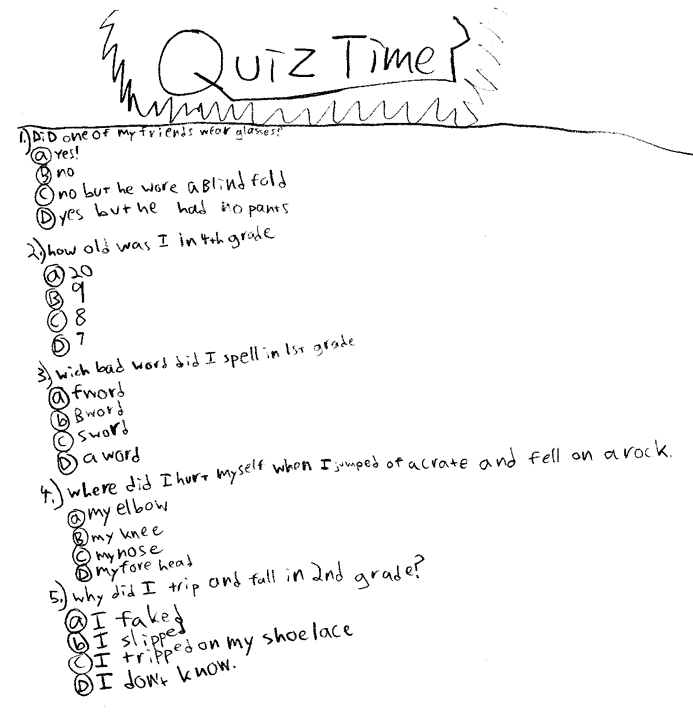 Quiz Time
1.) DiD one of my friends wear glasses?
a yes!
B no
C no but he wore a Blind fold
D yes but he had no pants
2.) how old was I in 4th grade
a 20
B 9
C 8
D 7
3.) wich bad word did I spell in 1st grade
a fword
b Bword
C sword
D a word
4.) where did I hurt myself when I jumped of a crate and fell on a rock.
a my elbow
B my knee
C my nose
D my fore head
5.) why did I trip and fall in 2nd grade?
a I faked
b I slipped
C I tripped on my shoelace
D I dont know.